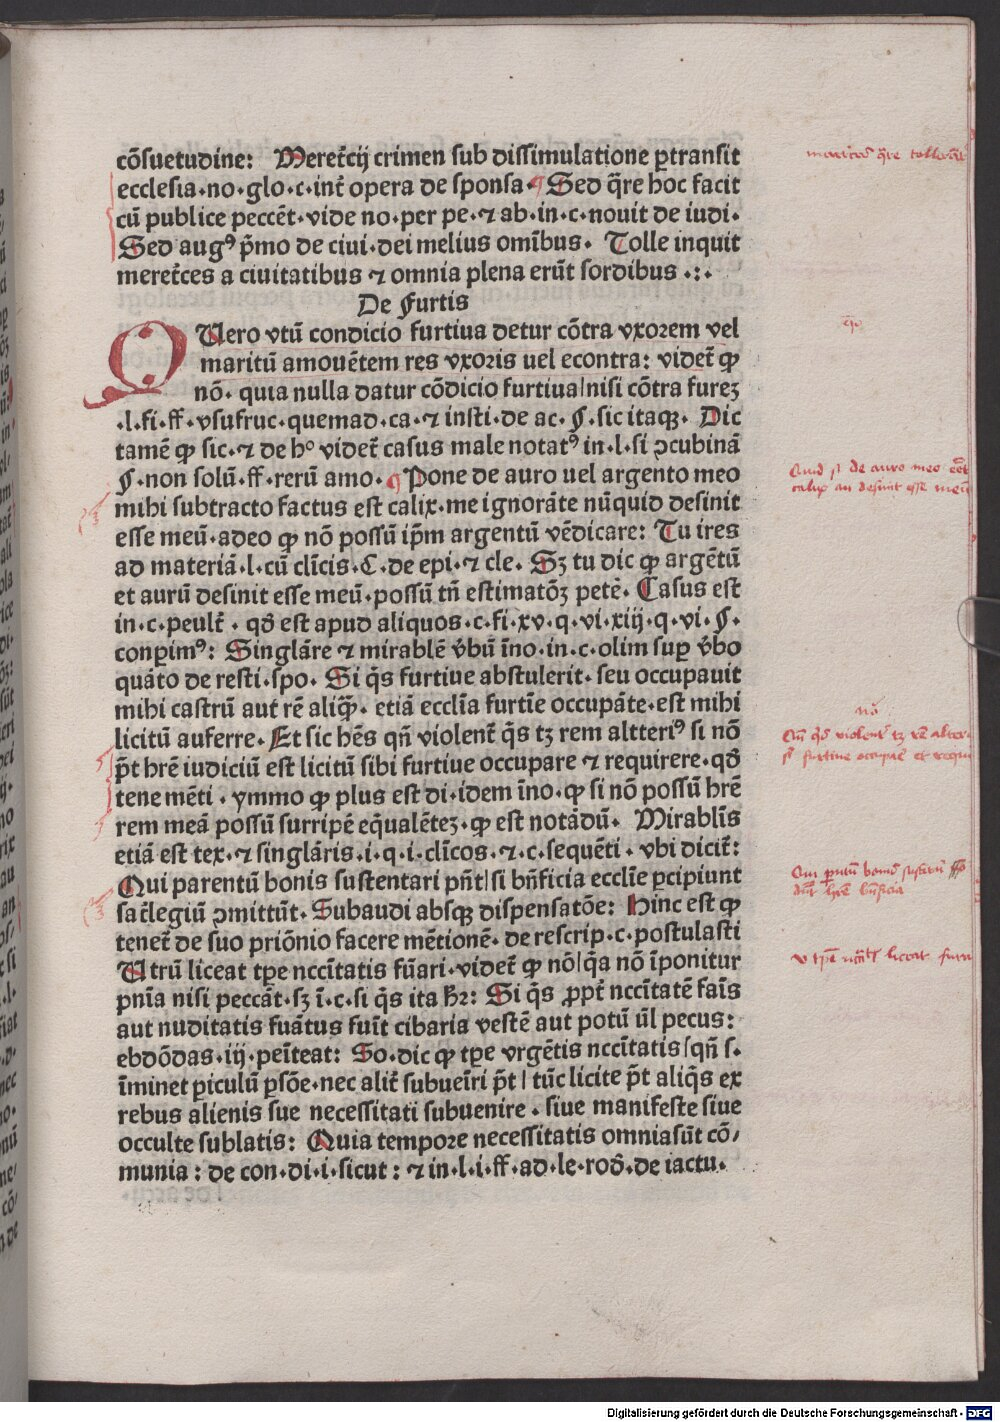 cõsuetudine: Meret̃cij crimen sub dissimulatione ꝑtransit
ecclesia·no·glo·c·int̃ opera de sponsa· ¶ Sed q̃re hoc facit
cũ publice peccẽt·vide no·per pe·⁊ ab·in·c·nouit de iudi·
Sed augꝰ p̃mo de ciui·dei melius omĩbus· Tolle inquit
meret̃ces a ciuitatibus ⁊ omnia plena erũt sordibus ·:·
De Furtis
QUero vtũ condicio furtiua detur cõtra vxorem vel
maritũ amouẽtem res vxoris uel econtra: videt̃ ꝙ
nõ· quia nulla datur cõdicio furtiua|nisi cõtra fureꝫ
·l·fi·ff·vsufruc·quemad·ca·⁊ insti·de ac·§·sic itaqꝫ· Dic
tamẽ ꝙ sic·⁊ de hᵒ videt̃ casus male notatꝰ in·l·si ꝯcubinã
§·non solũ·ff·rerũ amo· ¶ Pone de auro uel argento meo
mihi subtracto factus est calix·me ignorãte nũquid desinit
esse meũ·adeo ꝙ nõ possũ ip̃m argentũ vẽdicare: Tu ires
ad materiã·l·cũ cl̃icis·C·de epi·⁊ cle· Sꝫ tu dic ꝙ argẽtũ
et aurũ desinit esse meũ·possũ tñ estimatõꝫ petẽ· Casus est
in·c·peult̃ · qð est apud aliquos·c·fi·xv·q·vi·xiij·q·vi·§·
conꝑimꝰ: Singlãre ⁊ mirablẽ ṽbũ ĩno·in·c·olim suꝑ ṽbo
quãto de resti·spo· Si q̃s furtiue abstulerit·seu occupauit
mihi castrũ aut rẽ aliq̃ꝫ· etiã eccl̃ia furtĩe occupãte·est mihi
licitũ auferre· Et sic hẽs qñ violent̃ q̃s tꝫ rem altteriꝰ si nõ
p̃t hrẽ iudiciũ est licitũ sibi furtiue occupare ⁊ requirere·qð
tene mẽti · ymmo ꝙ plus est di·idem ĩno·ꝙ si nõ possũ hrẽ
rem meã possũ surripẽ eq̃ualẽteꝫ·ꝙ est notãdũ· Mirabl̃is
etiã est tex·⁊ singlãris·i·q·i·cl̃icos·⁊·c·sequẽti · vbi dicit̃:
Qui parentũ bonis sustentari pñt|si bñficia ecclĩe ꝑcipiunt
sac̃legiũ ꝯmittũt· Subaudi absqꝫ dispensatõe: Hinc est ꝙ
tenet̃ de suo priõnio facere mẽtionẽ· de rescrip·c·postulasti
Utrũ liceat tꝑe nccĩtatis fũari·videt̃ ꝙ nõ|q̃a nõ ĩponitur
pnĩa nisi peccãt·sꝫ ĩ·c·si q̃s ita hr̃: Si q̃s ꝓpt̃ nccĩtatẽ faĩs
aut nuditatis fuãtus fuĩt cibaria vestẽ aut potũ ũl pecus:
ebdõdas·iij·penĩteat: So·dic ꝙ tꝑe vrgẽtis nccĩtatis|qñ s·
ĩminet ꝑiculũ ꝑsõe·nec alit̃ subuenĩri p̃t|tũc licite p̃t aliq̃s ex
rebus alienis sue necessitati subuenire · siue manifeste siue
occulte sublatis: Quia tempore necessitatis omniasũt cõ/
munia : de con·di·i·sicut : ⁊ in·l·i·ff·ad·le·roð·de iactu·
Quid si de auro meo
calix an desinit esse
Digitalisierung gefördert durch die Deutsche Forschungsgemeinschaft - DFG